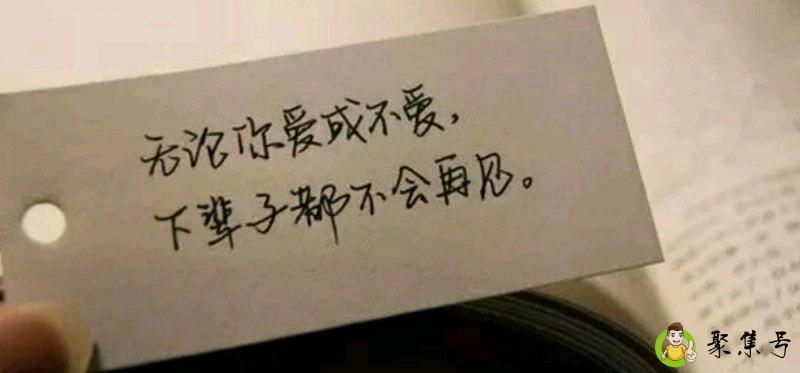 无论你爱或不爱，
下辈子都不会再见。
聚集号